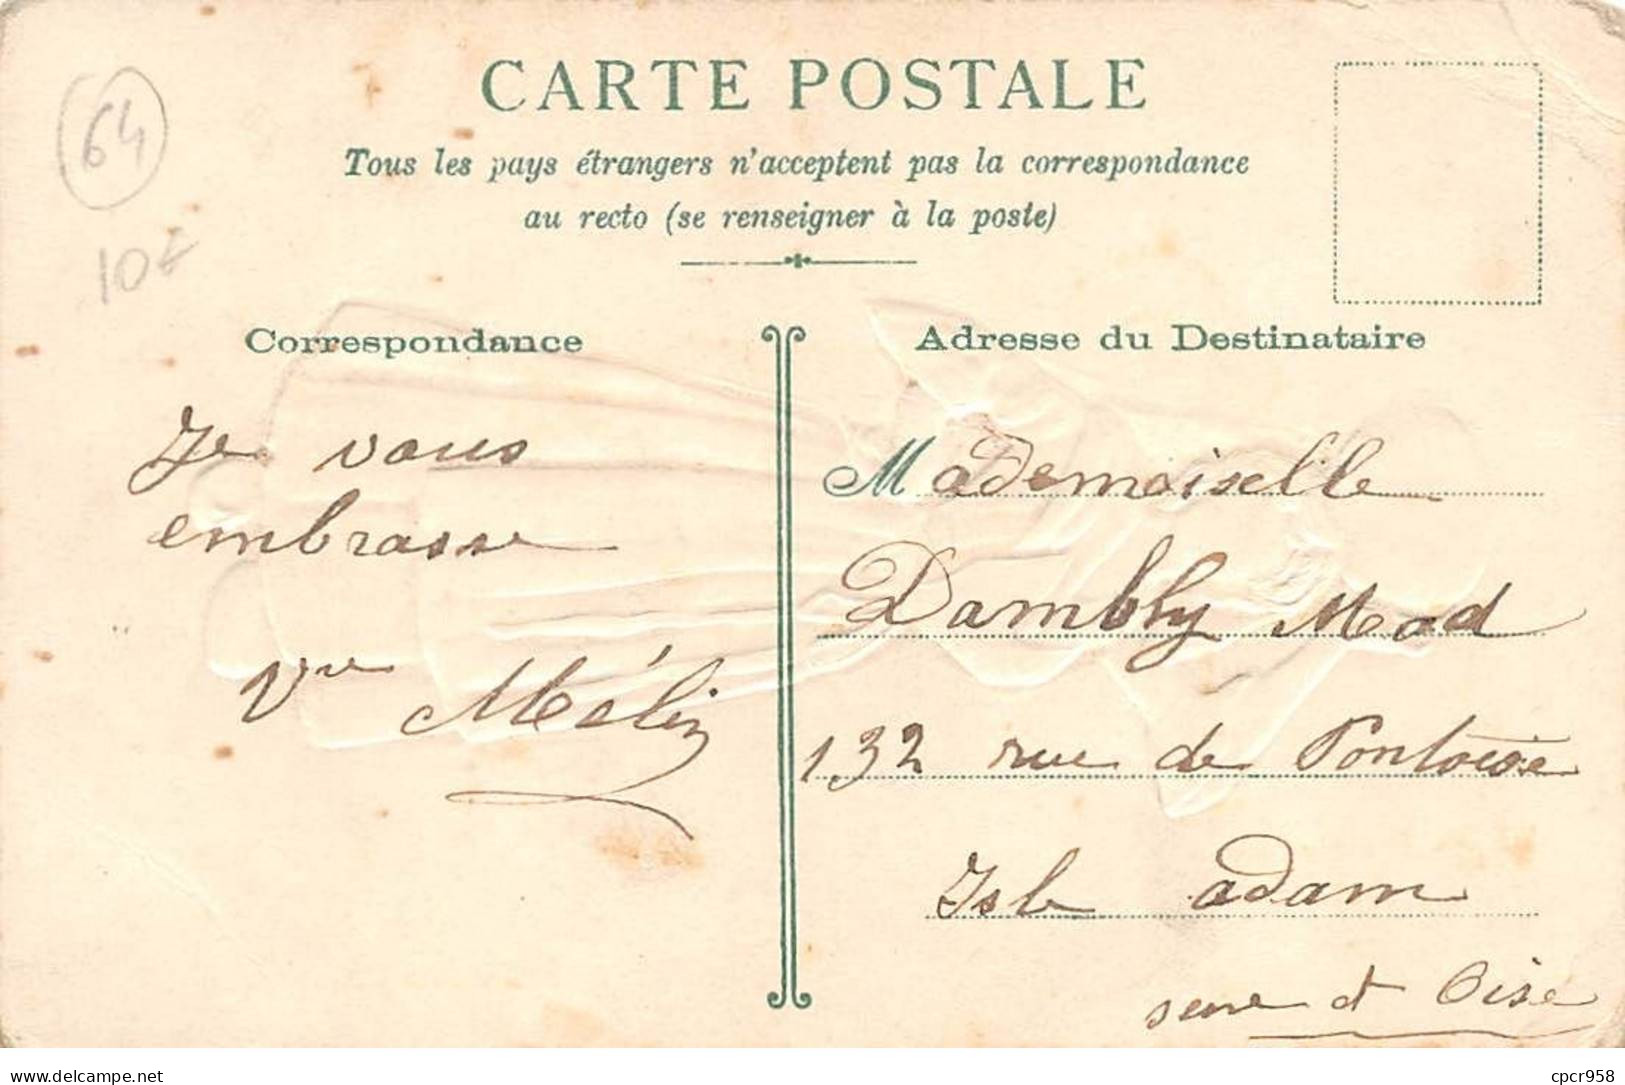 64
10€
CARTE POSTALE
Tous les pays étrangers n'acceptent pas la correspondance
au recto (se renseigner à la poste)
Correspondance
Je vous
embrasse
Vve Mélin
Adresse du Destinataire
Mademoiselle
Dambly Mad
132 rue de Pontoise
Isle adam
seine et Oise
Delcampe.net
cpcr958